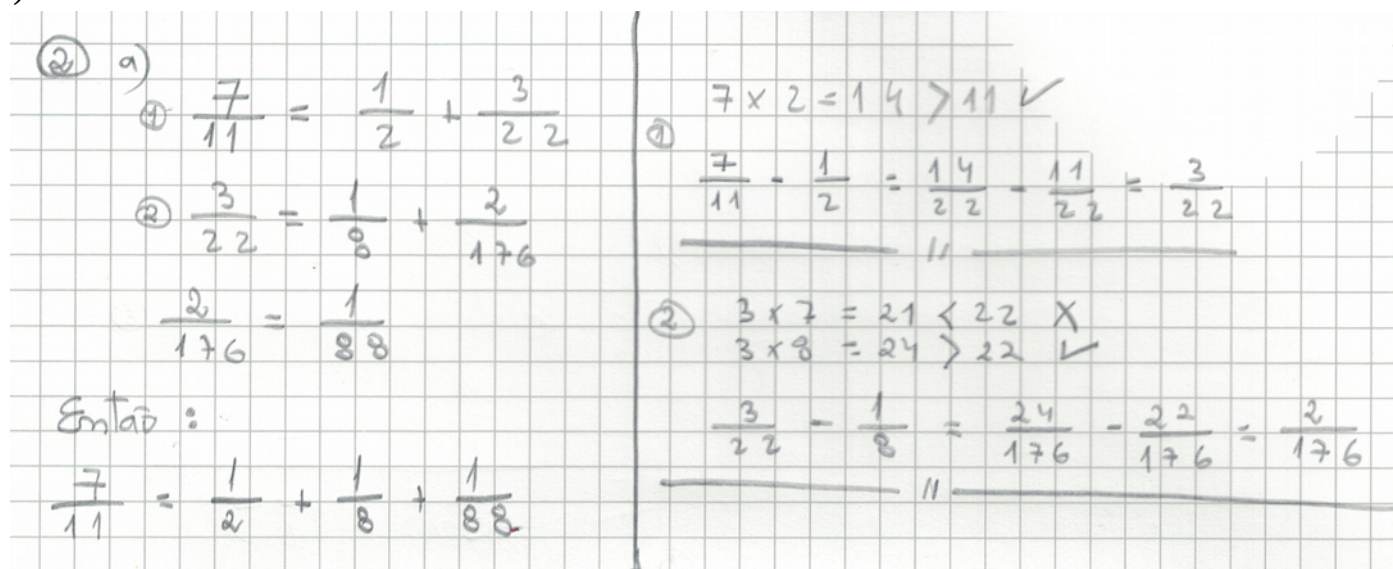 ② a)
① 7/11 = 1/2 + 3/22
② 3/22 = 1/8 + 2/176
2/176 = 1/88
Então :
7/11 = 1/2 + 1/8 + 1/88
7 x 2 = 14 > 11 ✓
①
7/11 - 1/2 = 14/22 - 11/22 = 3/22
//
② 3 x 7 = 21 < 22 X
3 x 8 = 24 > 22 ✓
3/22 - 1/8 = 24/176 - 22/176 = 2/176
//